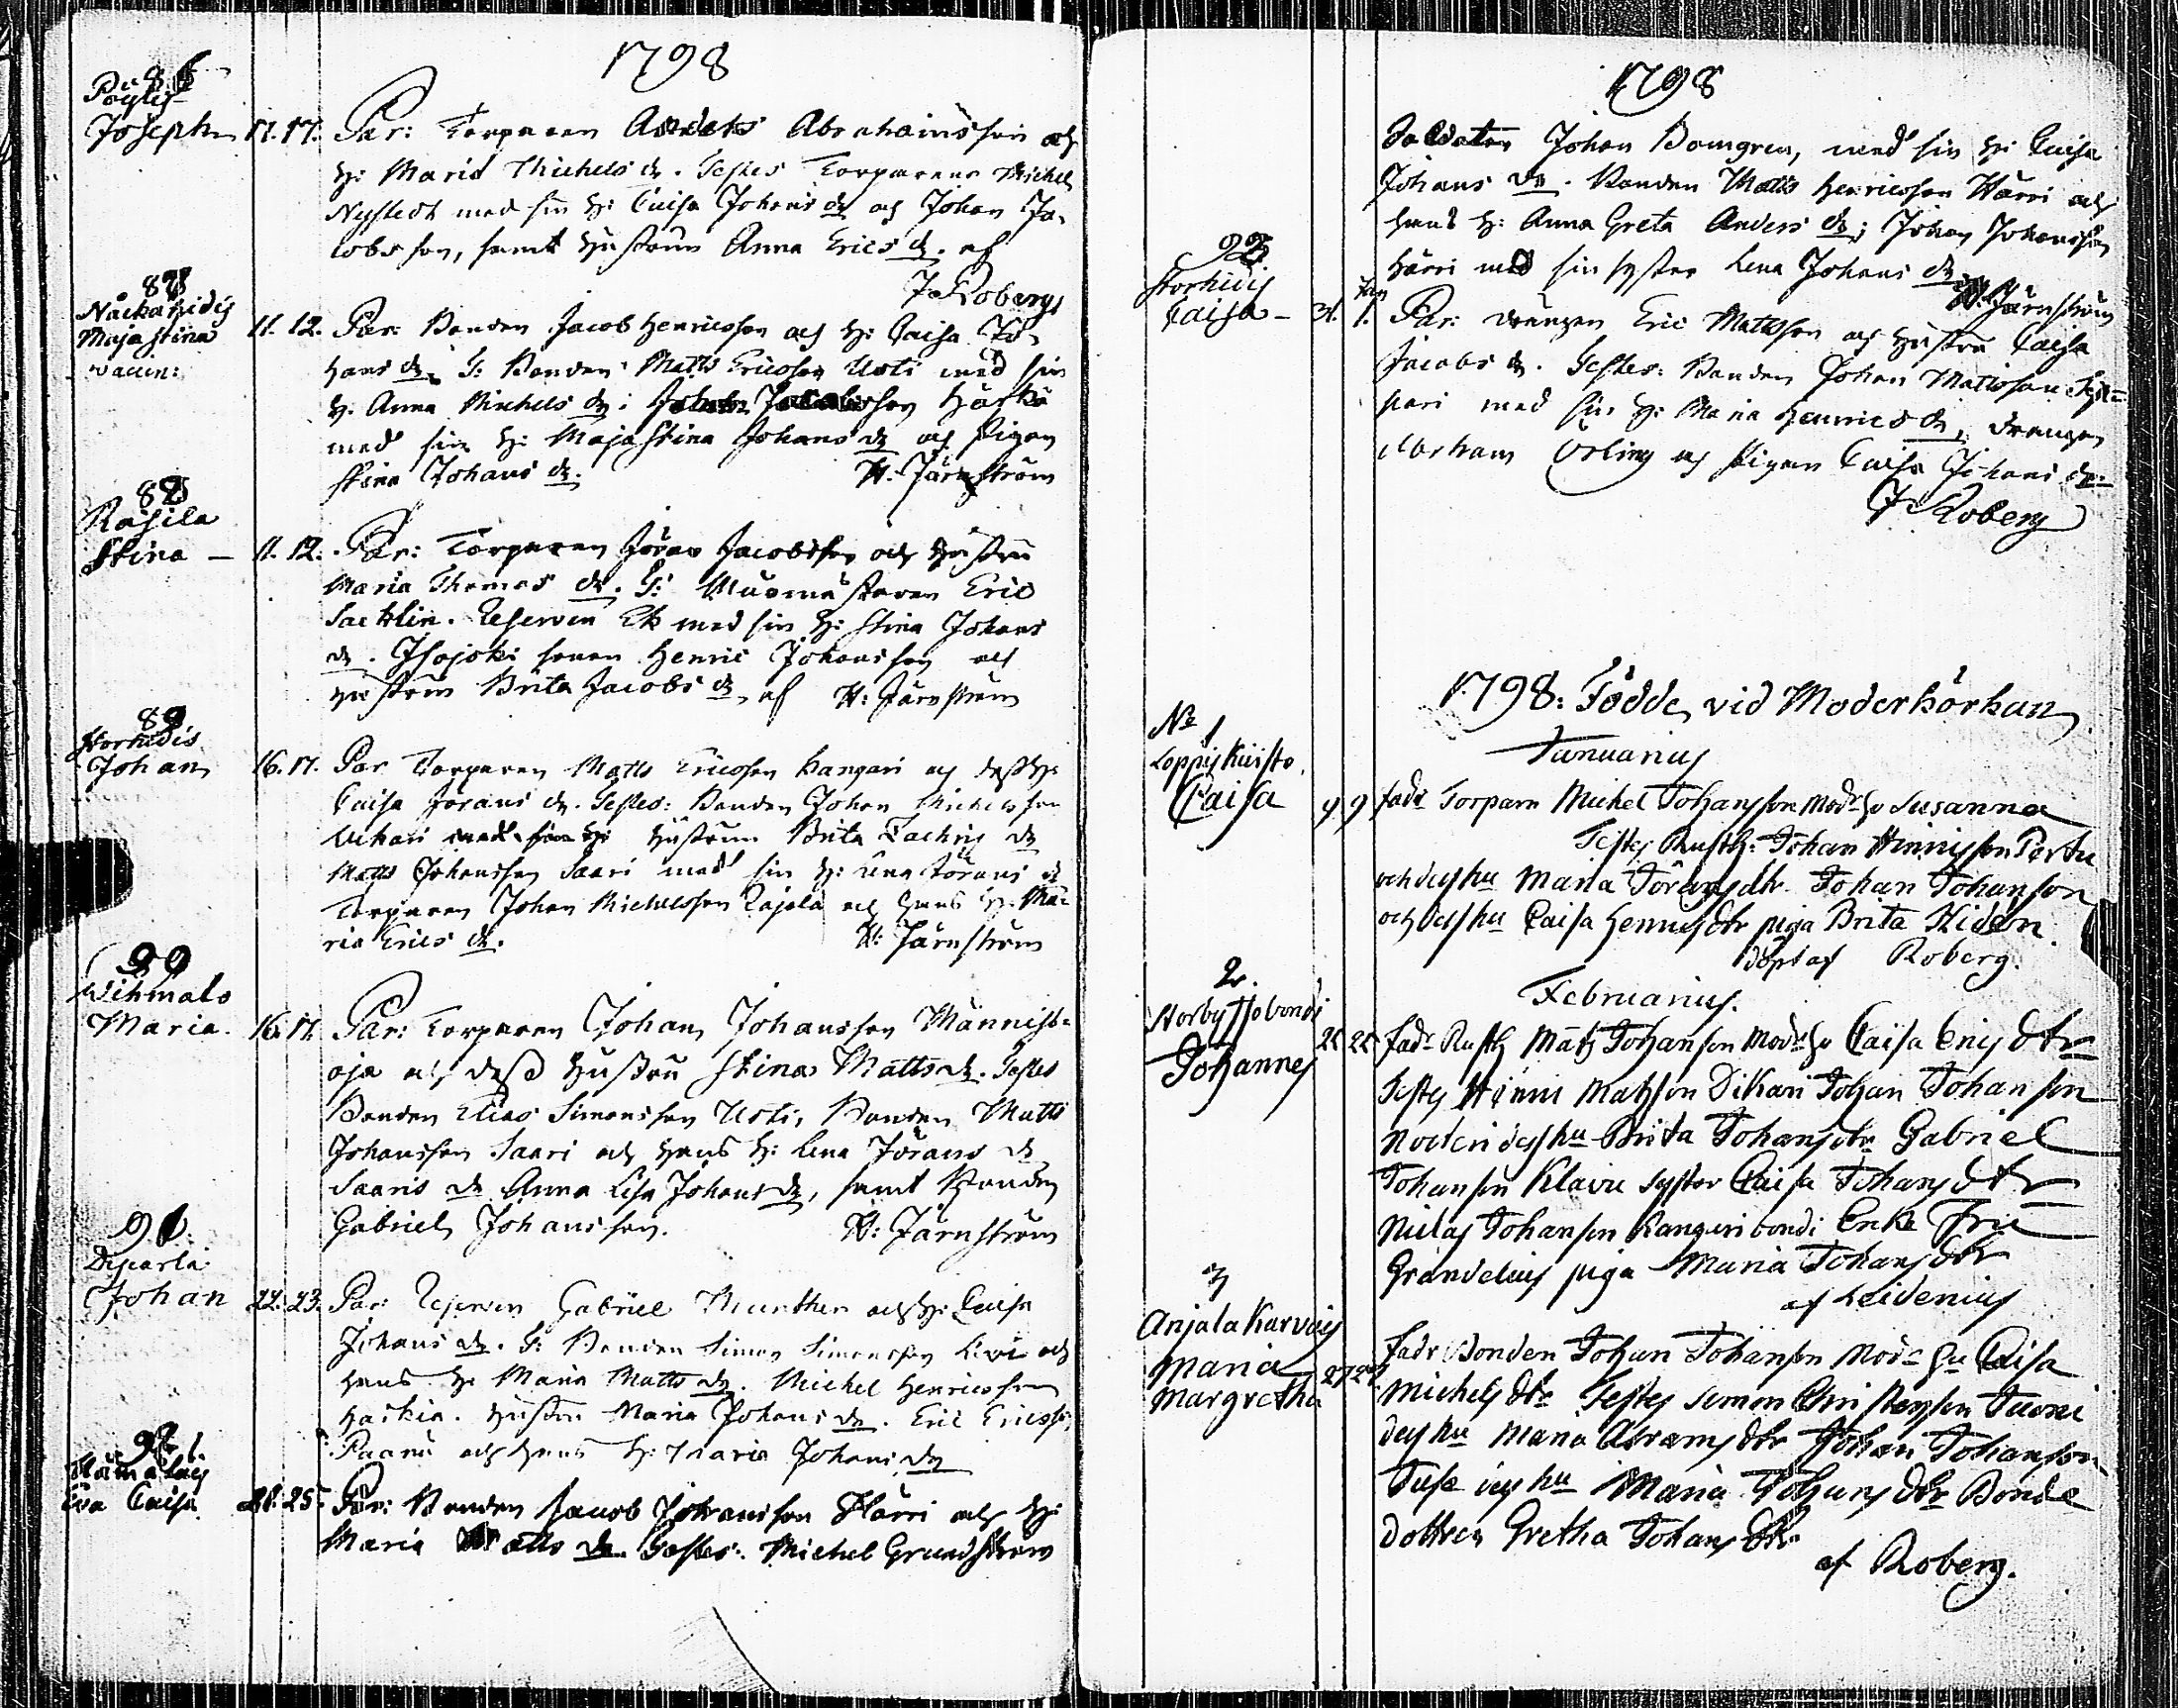 1798
86
Pöytis
Joseph 17. 17. Par: Torparen Anders Abrahamsson och
H: Maria Michels dr. Testes Torparens Michel
Nystedt med sin H: Caisa Johans dr och Johan Ja-
cobsson, samt Hustrun Anna Erics dr. af
J Roberg
87
Majastina
11. 12. Par: Bonden Jacob Henricsson och H: Caisa Jo-
hans dr. T: Bonden Matts Ericsson Usti med sin
H. Anna Michels dr: Härkä
med sin H: Majastina Johans dr och Pigan
Stina Johans dr. H: Järnström
88
Rasila
Stina — 11. 12. Par: Torparen Jöran Jacobsson och Hustru
Maria Thomas dr. T: Murmästaren Eric
Reserven Ek med sin H: Stina Johans
dr. Isojoki sonen Henric Johansson och
Hustrun Brita Jacobs dr, af H: Järnström
89
Storhidis
Johan 16. 17. Par Torparen Matts Ericsson Kangari och dess H:
Caisa Jörans dr. Testes: Bonden Johan Michelsson
Uckari med sin H: Hustrun Brita Zachris dr
Matts Johansson Saari med sin H: Lena Jörans dr
Torparen Johan Michelsson Rajala och hans H: Ma-
ria Erics dr. H: Järnström
90
Wihmalo
Maria. 16. 17. Par: Torparen Johan Johansson Männist-
oja och dess Hustru Stina Matts dr. Testes
Bonden Elias Simonsson Usti, Bonden Matts
Johansson Saari och hans H: Lena Jörans dr
Saaris dr Anna Lisa Johans dr, samt Bonden
Gabriel Johansson. H: Järnström
91
Johan 22. 23. Par: Reserven Gabriel Munther och H: Caisa
Johans dr. T: Bonden Simon Simonsson och
hans H: Maria Matts dr. Michel Henricsson
Haikia. Hustru Maria Johans dr. Eric Ericsson
Paanu och hans H: Maria Johans dr
92
Eva Caisa 25. Par: Bonden Jacob Johansson Härri och H:
Maria Matts dr. Testes: Michel Grundström
1798
Soldaten Johan Bomgren, med sin H: Caisa
Johans dr. Bonden Matts Henricsson Härri och
hans H: Anna Greta Anders dr; Johan Johansson
Härri med sin syster Lena Johans dr
H. Järnström
93
Storhidis Jan
Caisa — 31. 1. Par: drängen Eric Mattsson och Hustru Caisa
Jacobs dr. Testes: Bonden Johan Matsson
med sin H: Maria Henrics dr, drängen
Abraham Orling och Pigan Caisa Johans dr
J Roberg
1798: Födde vid Moderkörkan
Januarius
No 1
Loppis Kiisto
Caisa 9 9 fadr Torparn Michel Johansson Modr Hu Susanna
Testes Rusth: Johan Hinrisson Pertu
och des hu Maria Jörans dtr. Johan Johanson
och des hu Caisa Henris dtr piga Brita Hiden.
döpt af Roberg.
Februarius.
2.
Johannes 22 22 fadr Rusth Mats Johanson Modr Hu Caisa Eris dtr
Testes Hinris Matsson Dikari Johan Johan son
des hu Brita Johans dtr Gabriel
Johanson Klavu syster Caisa Johans dtr
Niclas Johanson Kanguri bondi Enke Fru
Grandelius piga Maria Johans dtr
af Leidenius
3
Anjala Karvais
Maria 27 27 fadr Bonden Johan Johanson Modr Hu Caisa
Margretha Michels dtr Testes Simon Christersson Tuoni
des hu Maria Abrams dtr Johan Johanson
des hu Maria Johans dtr Bonde
dottren Gretha Johans dtr
af Roberg.